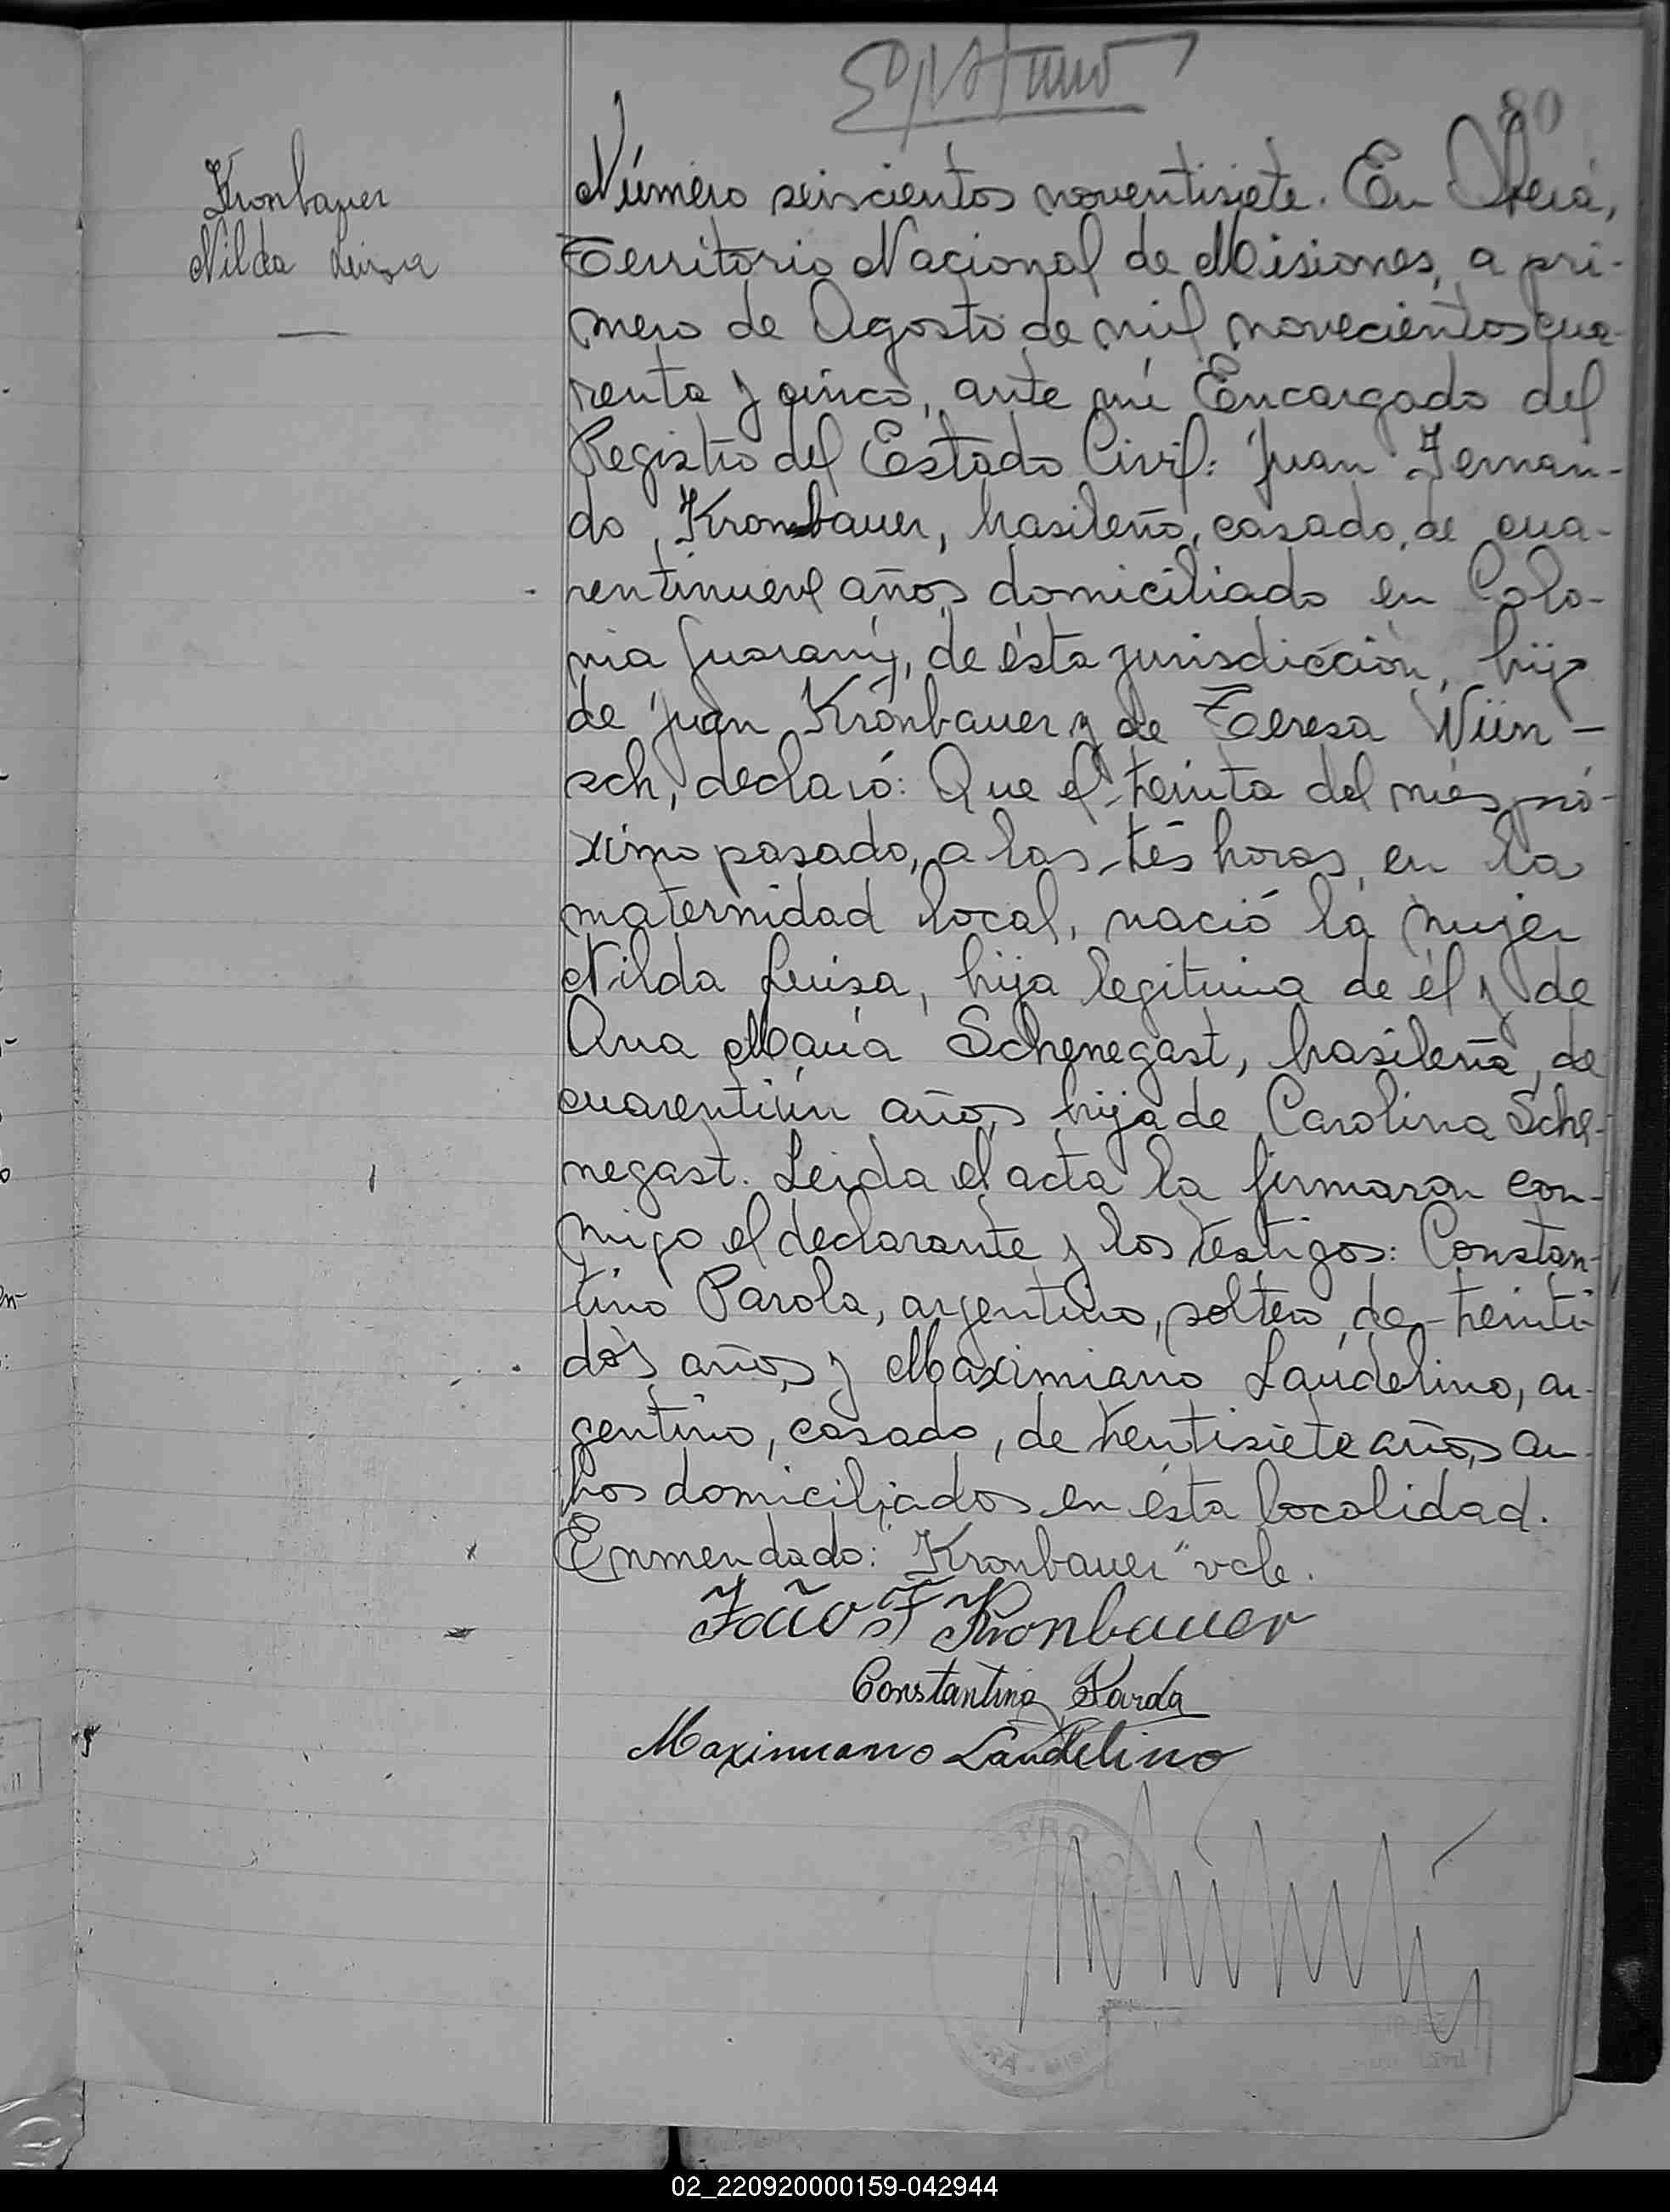 80
Kronbauer
Nilda Luisa
Número seiscientos noventisiete. En Oberá,
Territorio Nacional de Misiones, a pri-
mero de Agosto de mil novecientos cua-
renta y cinco, ante mí Encargado del
Registro del Estado Civil: Juan Fernan-
do Kronbauer, brasileño, casado, de cua-
rentinueve años domiciliado en Colo-
nia Guaraný, de ésta jurisdicción, hijo
de Juan Kronbauer y de Teresa Wün-
sch, declaró: Que el treinta del mes pró-
ximo pasado, a las trés horas, en la
maternidad local, nació la mujer
Nilda Luisa, hija legitima de él y de
Ana María Schenegast, brasileña, de
cuarentiún años, hija de Carolina Sche-
negast. Leida el acta la firmaron con-
migo el declarante y los testigos: Constan-
tino Parola, argentino, soltero, de treinti-
dós años y Maximiano Laudelino, ar-
gentino, casado, de trentisiete años, am-
bos domiciliados en ésta localidad.
Enmendado: "Kronbauer" vale.
João F Kronbauer
Constantino Parola
Maximiano Laudelino
02_220920000159-042944